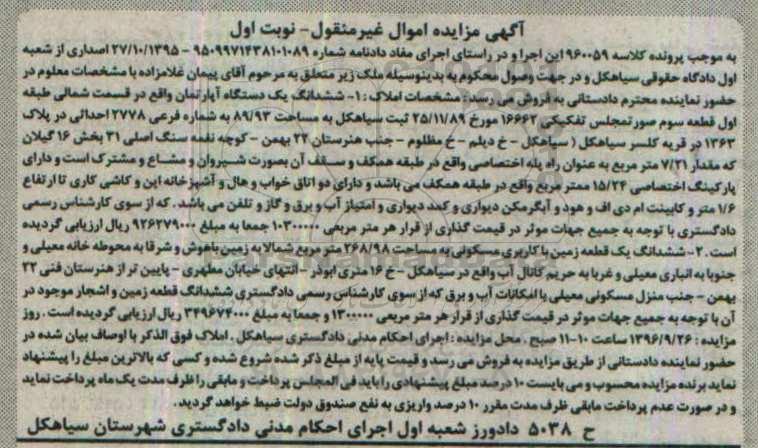 آگهی مزایده اموال غیرمنقول- نوبت اول
به موجب پرونده کلاسه ۹۶۰۰۵۹ این اجرا و در راستای اجرای مفاد دادنامه شماره ۹۵۰۹۹۷۱۴۳۸۱۰۱۰۸۹ - ۲۷/۱۰/۱۳۹۵ اصداری از شعبه
اول دادگاه حقوقی سیاهکل و در جهت وصول محکوم به بدینوسیله ملک زیر متعلق به مرحوم آقای پیمان غلامزاده با مشخصات معلوم در
حضور نماینده محترم دادستانی به فروش می رسد: مشخصات املاک : ۱- ششدانگ یک دستگاه آپارتمان واقع در قسمت شمالی طبقه
اول قطعه سوم صورتمجلس تفکیکی ۱۶۶۶۲ مورخ ۲۵/۱۱/۸۹ ثبت سیاهکل به مساحت ۸۹/۹۳ به شماره فرعی ۲۷۷۸ احداثی در پلاک
۱۳۶۳ در قریه کلسر سیاهکل ( سیاهکل - خ دیلم - خ مظلوم - جنب هنرستان ۲۲ بهمن - کوچه نغمه سنگ اصلی ۳۱ بخش ۱۶ گیلان
که مقدار ۷/۲۱ متر مربع به عنوان راه پله اختصاصی واقع در طبقه همکف و سقف آن بصورت شیروان و مشاع و مشترک است و دارای
پارکینگ اختصاصی ۱۵/۲۴ ممتر مربع واقع در طبقه همکف می باشد و دارای دو اتاق خواب و هال و آشپزخانه اپن و کاشی کاری تا ارتفاع
۱/۶ متر و کابینت ام دی اف و هود و آبگرمکن دیواری و کمد دیواری و امتیاز آب و برق و گاز و تلفن می باشد . که از سوی کارشناس رسمی
دادگستری با توجه به جمیع جهات موثر در قیمت گذاری از قرار هر متر مربعی ۱۰۳۰۰۰۰۰ جمعا به مبلغ ۹۲۶۲۷۹۰۰۰ ریال ارزیابی گردیده
است . ۲- ششدانگ یک قطعه زمین با کاربری مسکونی به مساحت ۲۶۸/۹۸ متر مربع شمالا به زمین باهوش و شرقا به محوطه خانه معیلی و
جنوبا به انباری معیلی و غربا به حریم کانال آب واقع در سیاهکل - خ ۱۶ متری ابوذر - انتهای خیابان مطهری - پایین تر از هنرستان فنی ۲۲
بهمن - جنب منزل مسکونی معیلی با امکانات آب و برق که از سوی کارشناس رسمی دادگستری ششدانگ قطعه زمین و اشجار موجود در
آن با توجه به جمیع جهات موثر در قیمت گذاری از قرار هر متر مربعی ۱۳۰۰۰۰۰ و جمعا به مبلغ ۳۴۹۶۷۴۰۰۰ ریال ارزیابی گردیده است . روز
مزایده : ۱۳۹۶/۹/۲۶ ساعت ۱۰-۱۱ صبح . محل مزایده : اجرای احکام مدنی دادگستری سیاهکل . املاک فوق الذکر با اوصاف بیان شده در
حضور نماینده دادستانی از طریق مزایده به فروش می رسد و قیمت پایه از مبلغ ذکر شده شروع شده و کسی که بالاترین مبلغ را پیشنهاد
نماید برنده مزایده محسوب و می بایست ۱۰ درصد مبلغ پیشنهادی را باید فی المجلس پرداخت و مابقی را ظرف مدت یک ماه پرداخت نماید
و در صورت عدم پرداخت مابقی ظرف مدت مقرر ۱۰ درصد واریزی به نفع صندوق دولت ضبط خواهد گردید.
ح ۵۰۳۸ دادورز شعبه اول اجرای احکام مدنی دادگستری شهرستان سیاهکل